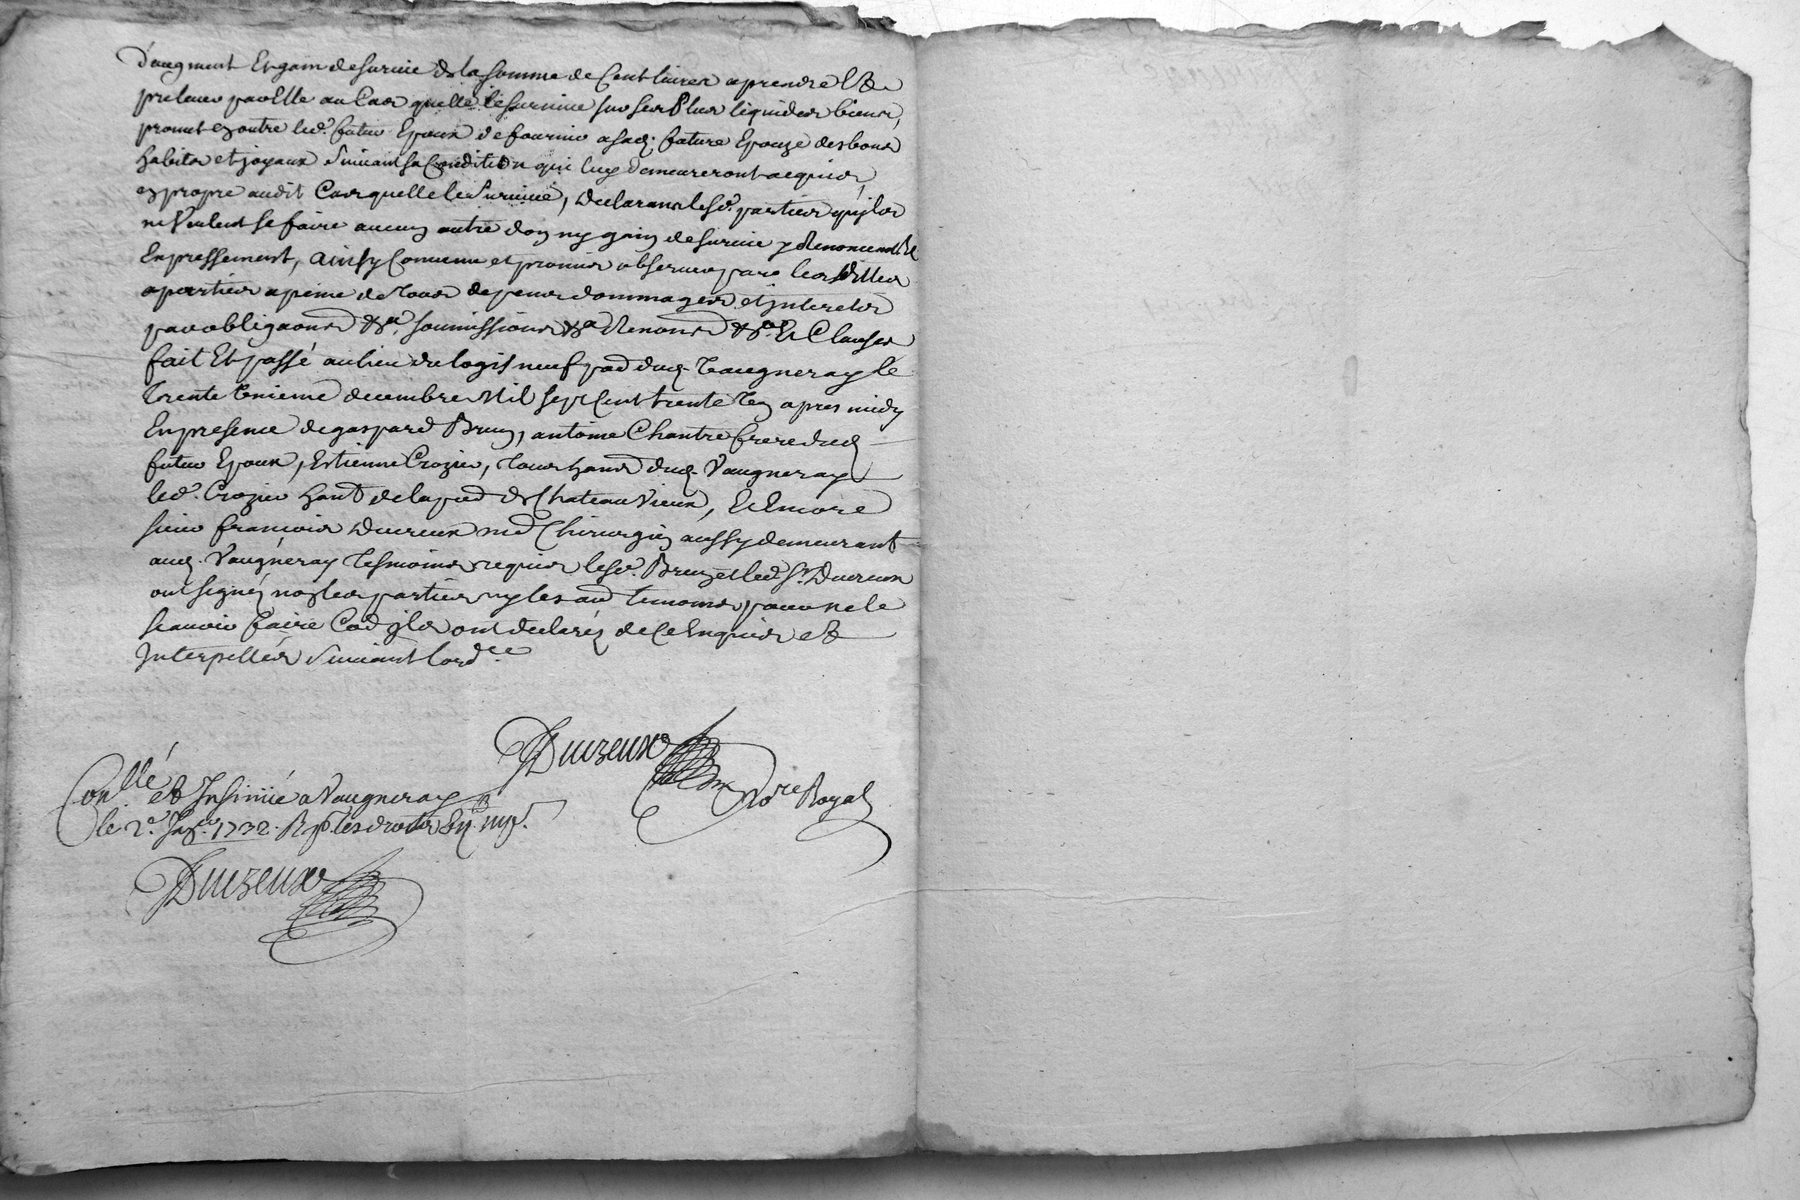 d'augment Et gain de survie de la somme de Cent livres a prendre Et
prelever par Elle au Cas quelle le survive sur ses Plus liquides biens,
promet en outre led. futur Epoux de fournir a sad. future Epouze des bons
habits et joyaux suivant sa Condition qui luy demeureront acquis,
en propre audit Cas quelle le survive, declarans lesd. parties qu'jls
ne Veulent se faire aucun autre don ny gain de survie y Renoncant
Expressement, ainsy Convenu et promis observer par les dittes
parties a peine de tous depens dommages et jnterets
par obligaons &a. soumissions &a Renons &a. Et Clauses
fait Et passé au lieu du logis neuf psse dud. Vaugneray le
trente unieme decembre Mil sept Cent trente un apres midy
En presence de gaspard Brun, antoine Chantre frere dud.
futur Epoux, Estienne Crozier, tous habns dud. Vaugneray
led. Crozier habt. de la psse de Chateauvieux, Et Encore
sieur françois Ducreux me Chirurgien aussy demeurant
aud. Vaugneray tesmoins requis lesd. Brun et led. Sr. Ducreux
ont signéz non les parties ny les aues temoins pour ne le
scavoir faire Co'e jls ont declaréz de Ce Enquis et
Interpellés suivant lordce
Ducreux
Nore Royal
Conllé et Insinüé a Vaugneray
le 2e. Janer. 1732. R
Ducreux